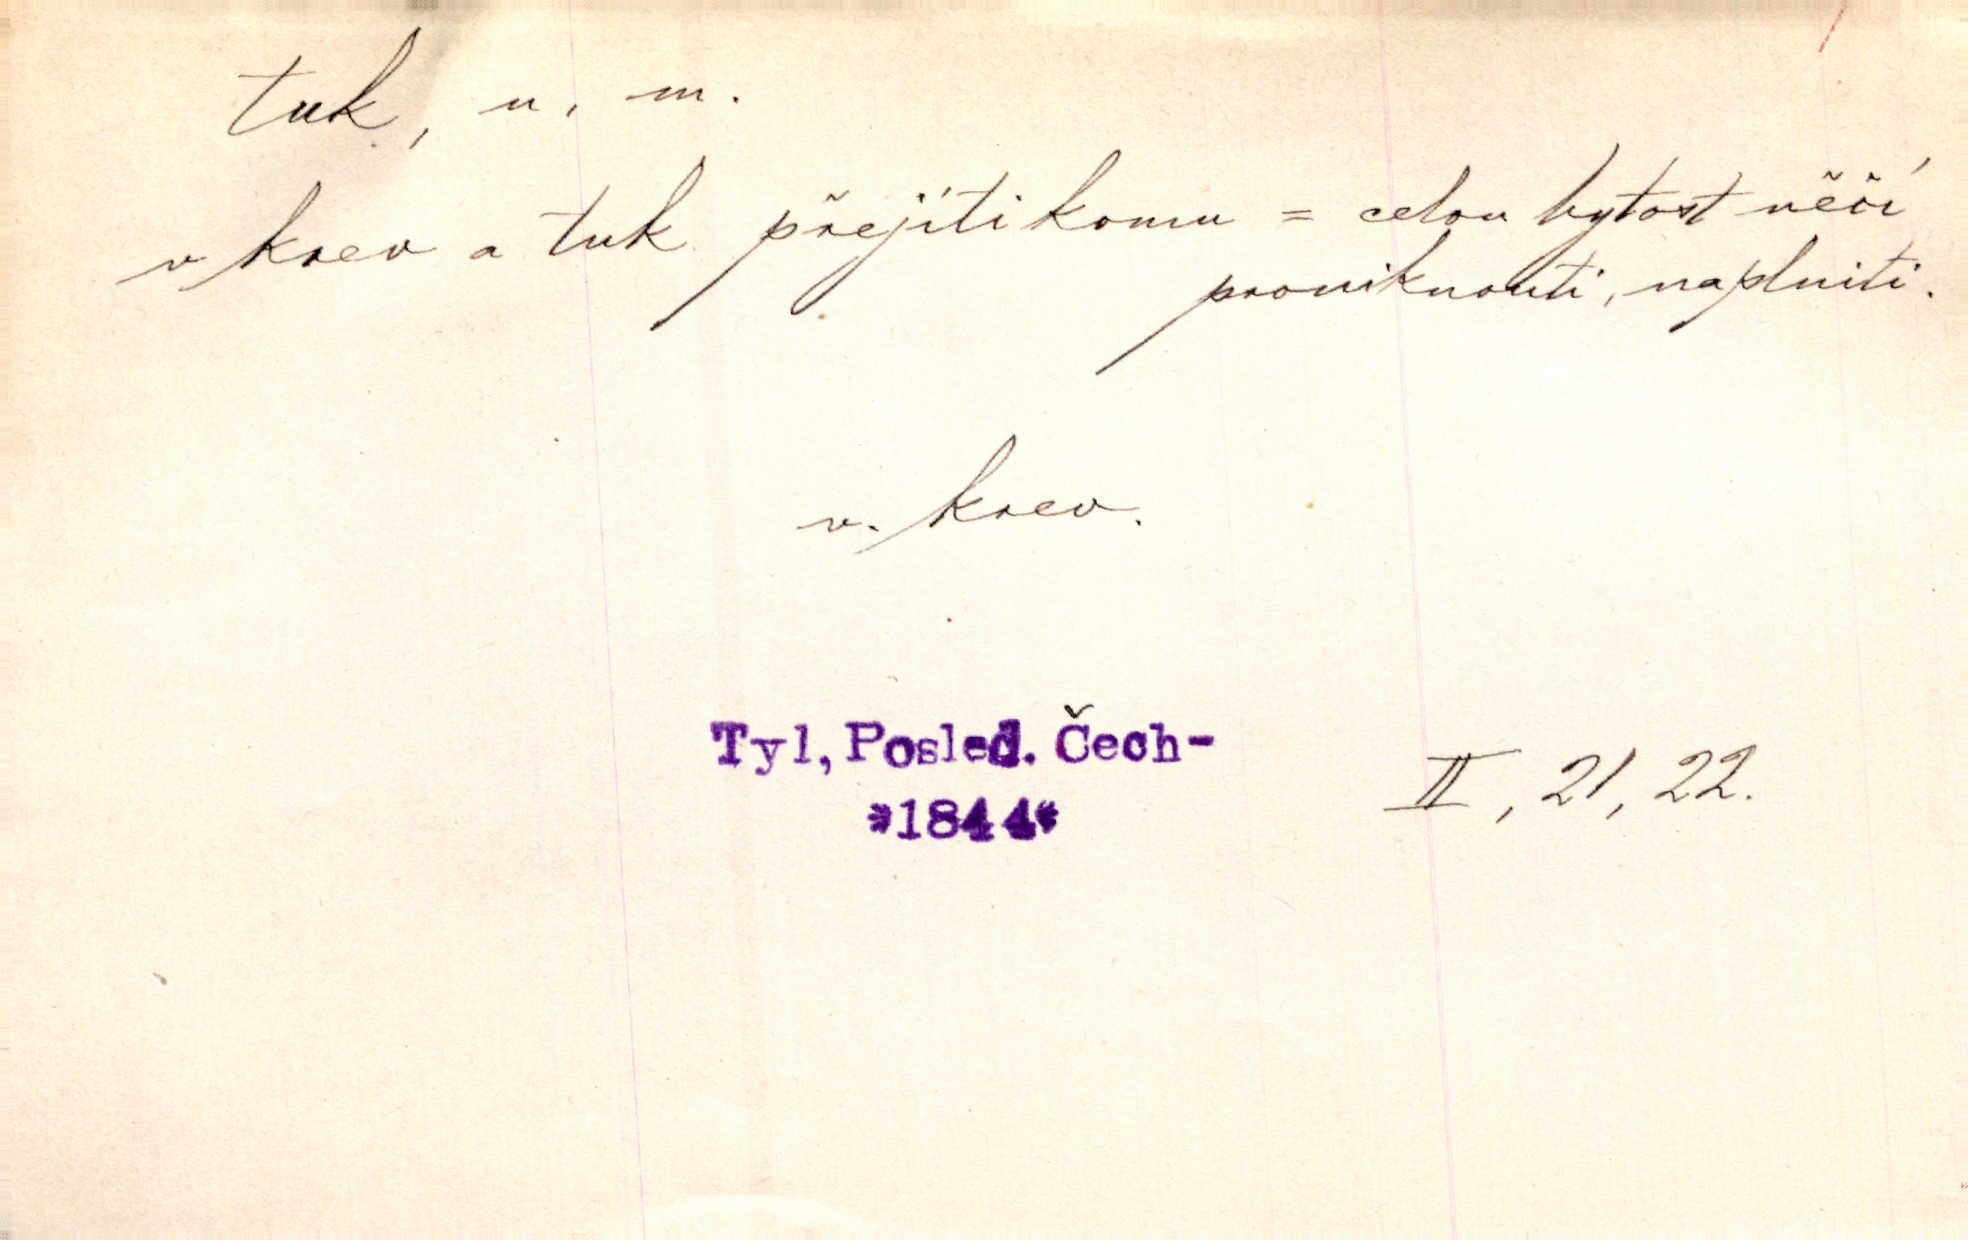 tuk, u, m.
v krev a tuk přejíti komu = celou bytost něčí
proniknouti, naplniti.
v. krev.
Tyl, Posled. Čech-
*1844*
II, 21, 22.